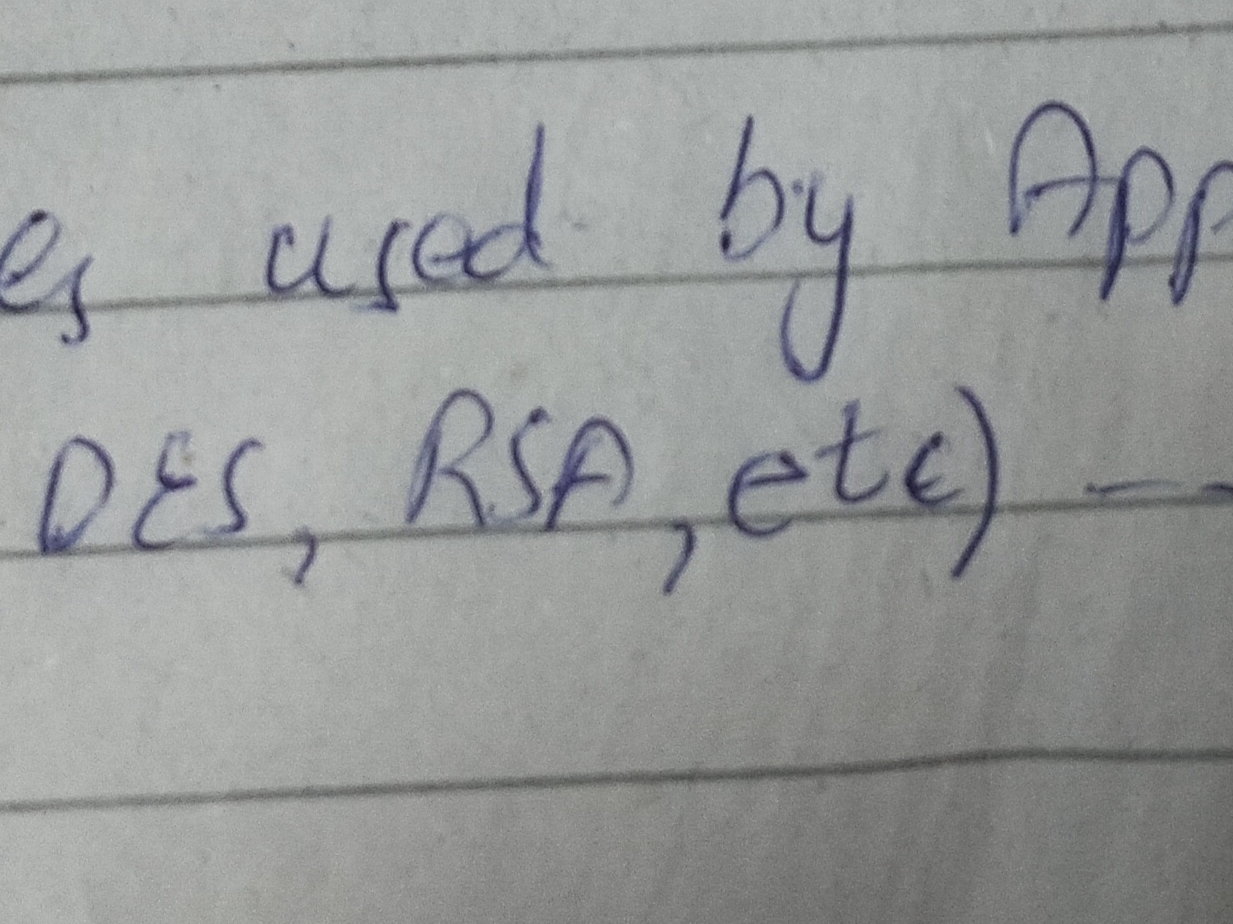 es used by App
DES, RSA, etc) —